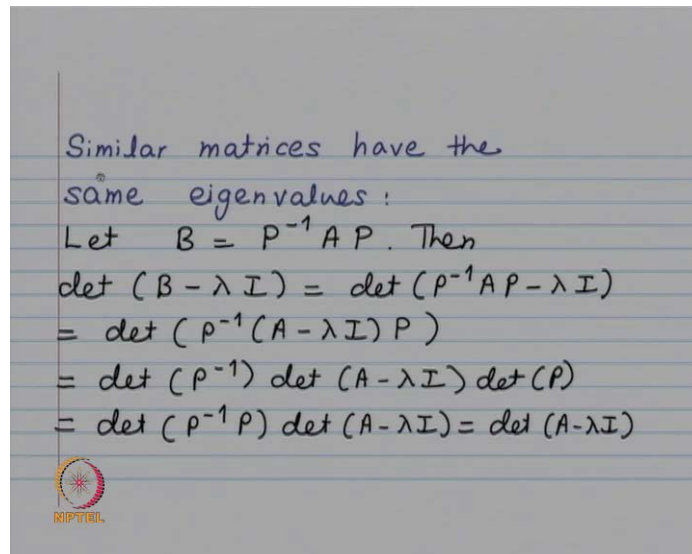 Similar matrices have the
same eigenvalues :
Let B = P⁻¹ A P. Then
det (B - λ I) = det (P⁻¹AP - λ I)
= det (P⁻¹(A - λI) P)
= det (P⁻¹) det (A - λI) det (P)
= det (P⁻¹ P) det (A - λI) = det (A-λI)
NPTEL